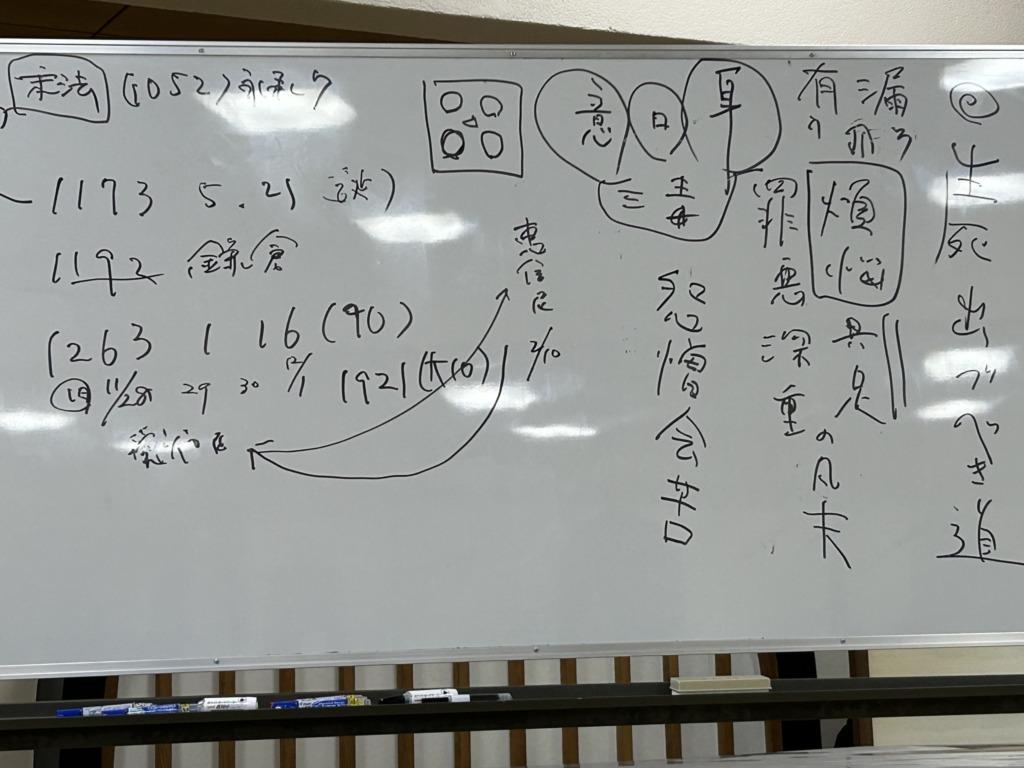 ◎生死出づべき道
有漏
煩悩具足
罪悪深重の凡夫
身口意
三毒
怨憎会苦
末法(1052)
1173 5.21 誕
1192 鎌倉
1263 1 16 (90)
旧 11/28 29 30 12/1 1921(大10)
恵信尼 2/10
覚信尼